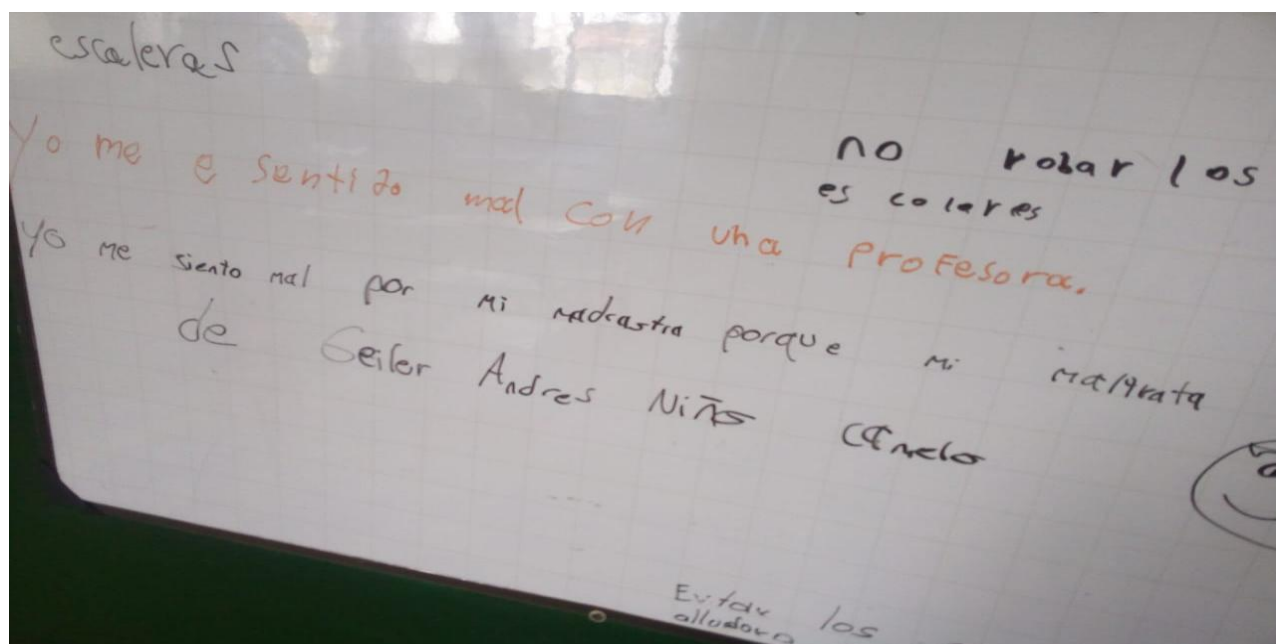 escaleras
no robar los
es coleres
Yo me e sentido mal con una profesora.
Yo me siento mal por mi madrastra porque mi maltrata
de Geiler Andres Niño
Evitar los